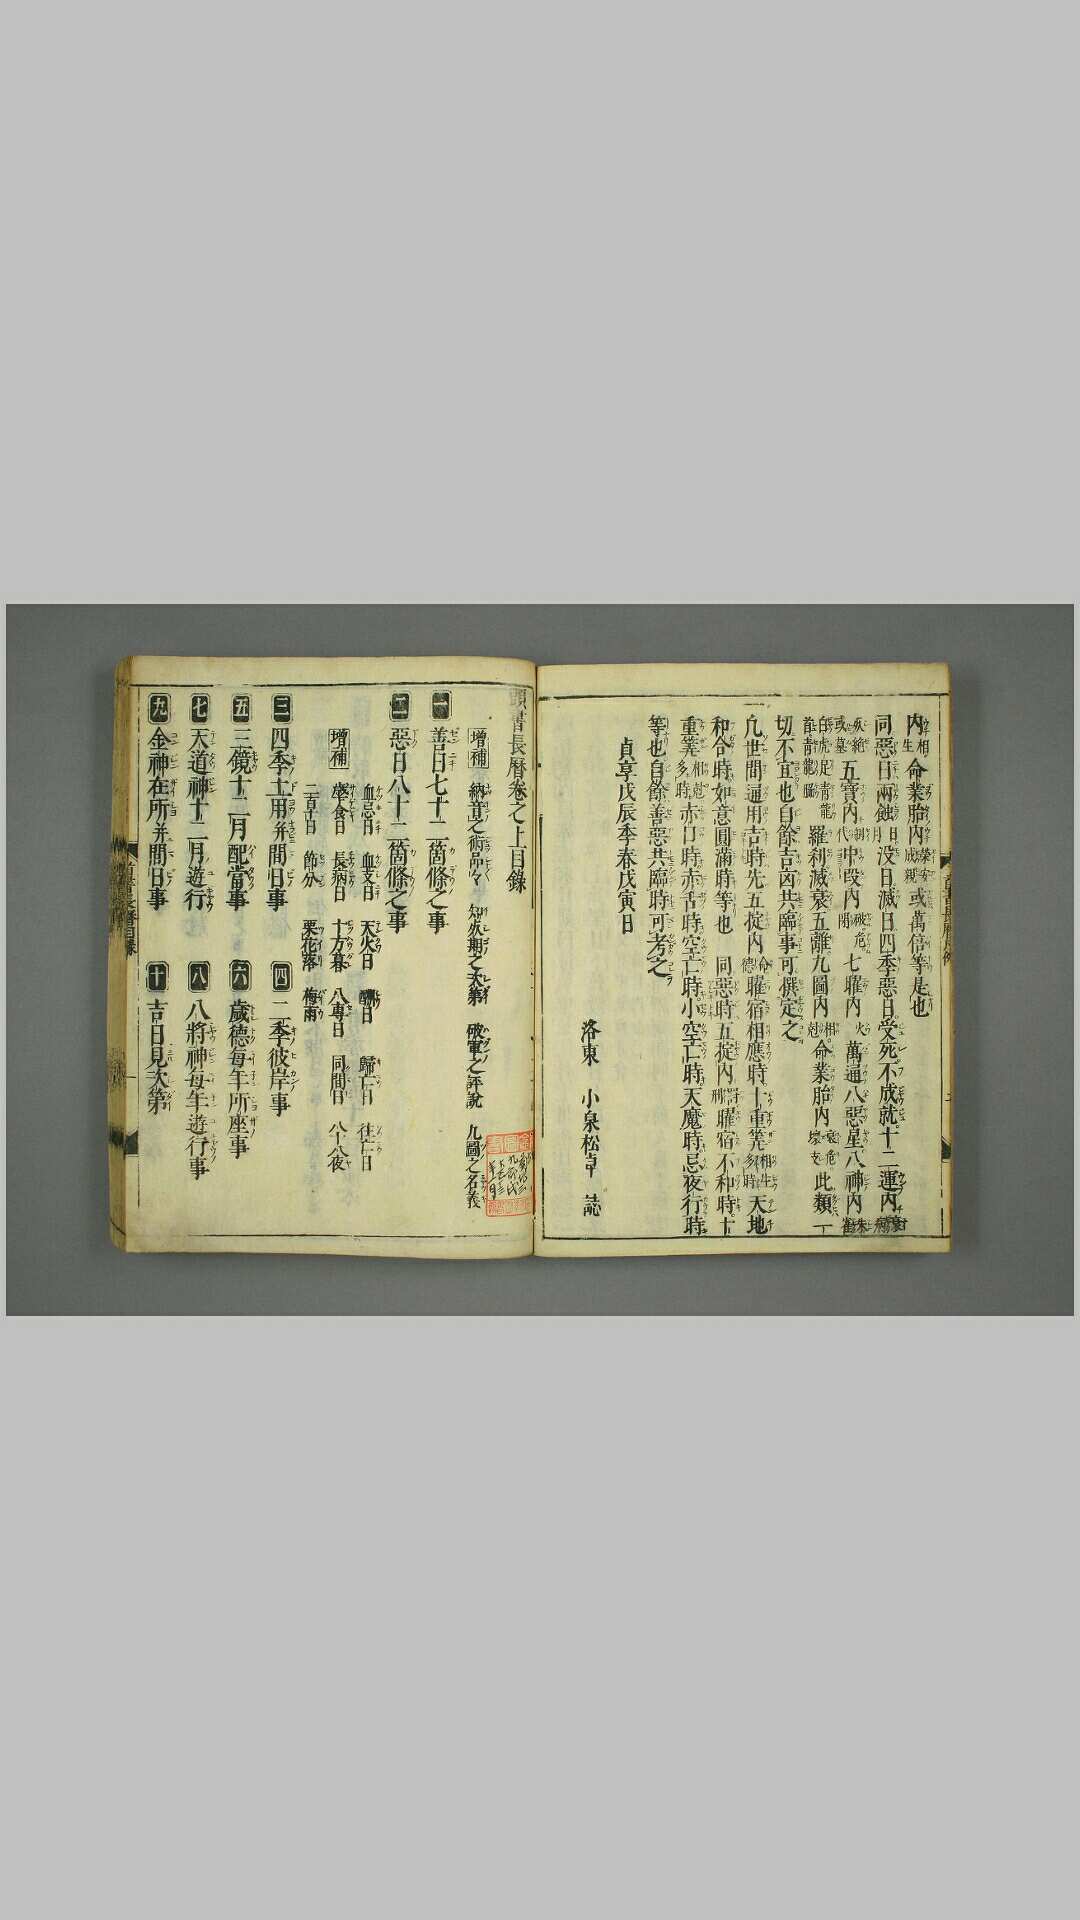 内相生命業胎内榮安成親或萬倍等是也
同惡日兩蝕日月没日滅日四季惡日受死不成就十二運内
或墓絶五寳内制代中段内破危閉七曜内火萬通八惡星八神内
白虎足青龍羅刹滅衰五離九圖内相尅命業胎内衰危壊此類一
切不宜也自餘吉凶共臨事可撰定之
凡世間通用吉時先五掟内命德曜宿相應時十重筭相生多時天地
和合時如意圓滿時等也同惡時五掟内曜宿不和時十
重筭相尅多時赤口時赤舌時空亡時小空亡時天魔時忌夜行時
等也自餘善惡共臨時可考之
貞享戊辰季春戊寅日
洛東 小泉松卓 誌
頭書長暦卷之上目錄
增補 納音之術品々 知死期之次第 破軍之評説 九圖之名義
一 善日七十二箇條之事
二 惡日八十二箇條之事
血忌日 血支日 天火日 歸亡日 往亡日
增補 蟄食日 長病日 十方暮 八專日 同間日 八十八夜
二百十日 節分 栗花落 梅雨
三 四季土用并間日事
四 二季彼岸事
五 三鏡十二月配當事
六 歲德每年所座事
七 天道神十二月遊行
八 八將神每年遊行事
九 金神在所并間日事
十 吉日見次第